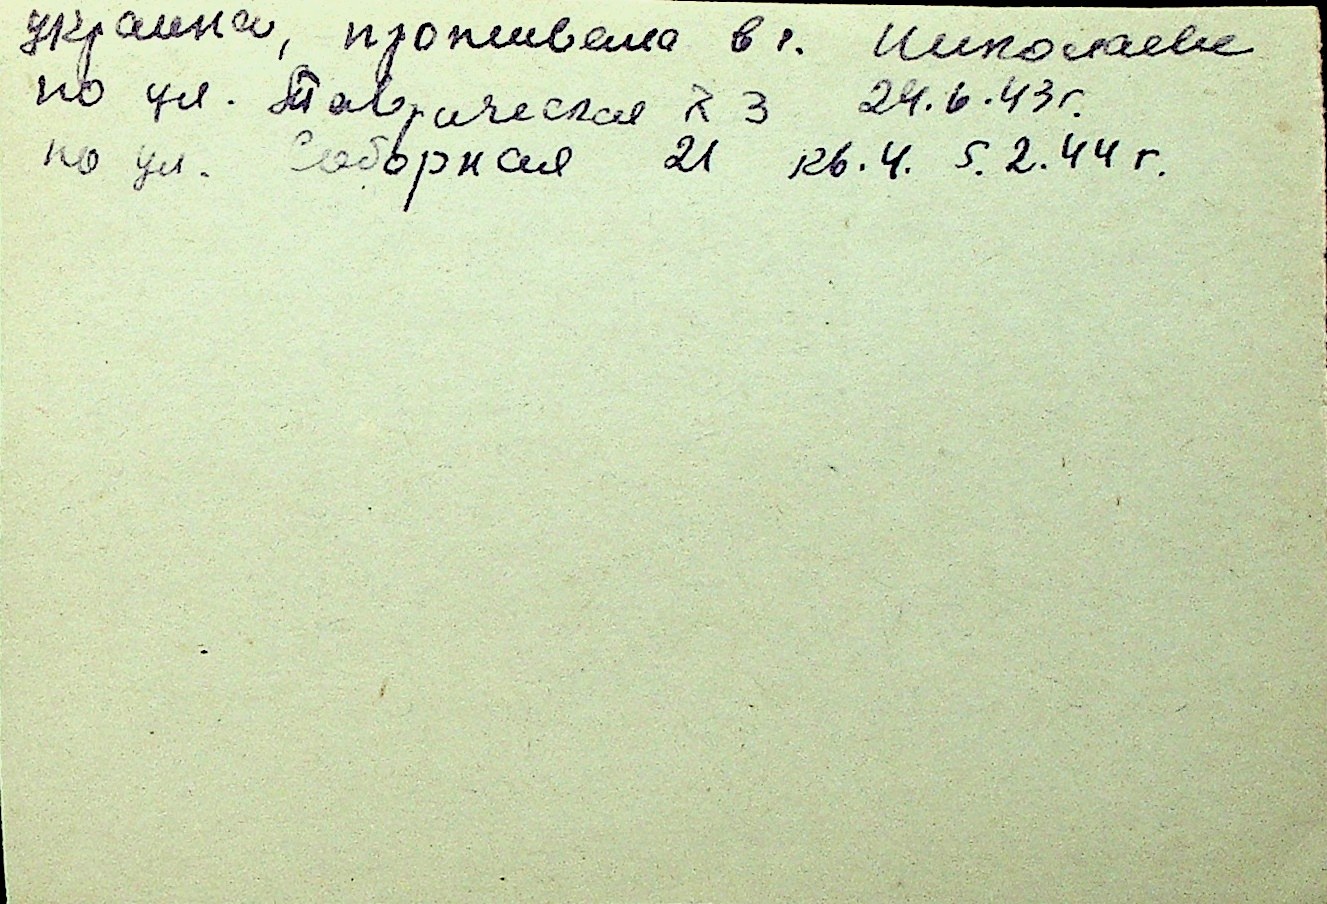 украинка, проживала в г. Николаеве
по ул. Таврическая 3 24.6.43г.
по ул. Соборная 21 кв.4. 5.2.44г.